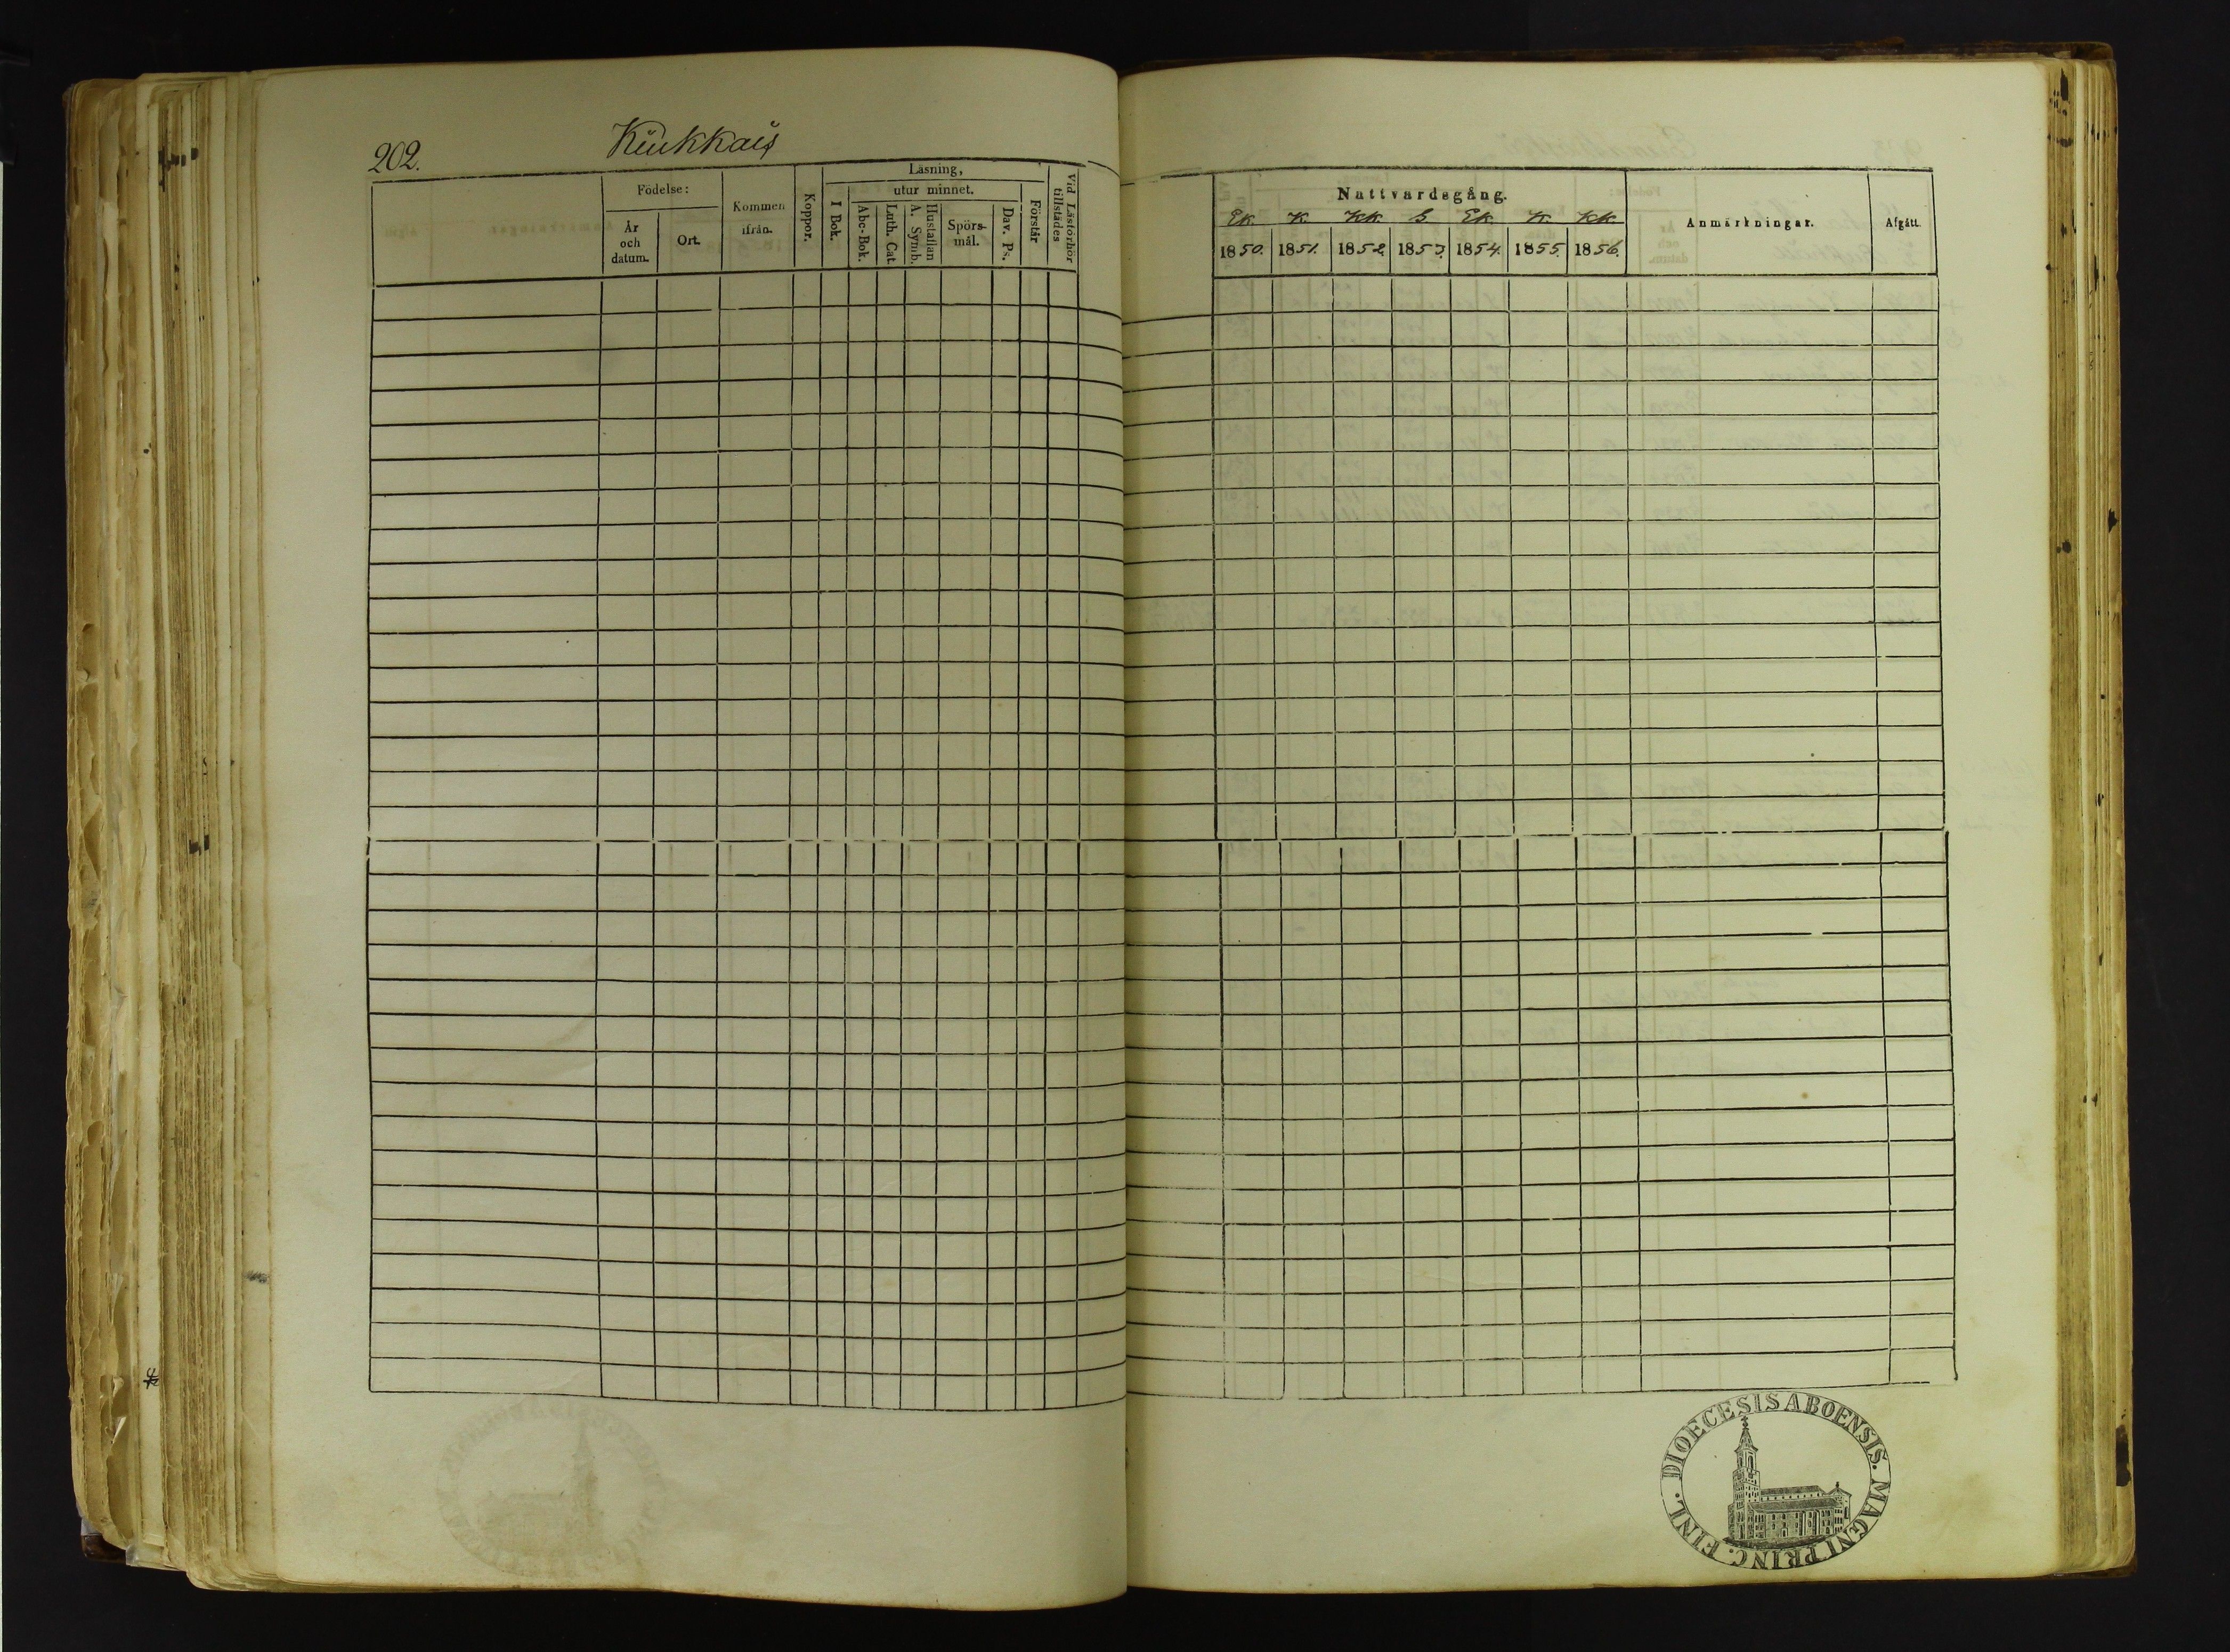 202.
Kiukkais
Födelse:
År och datum.
Ort.
Kommen ifrån.
Koppor.
Läsning,
I Bok.
utur minnet.
Abc-Bok.
Luth. Cat.
Hustaflan A. Symb.
Spörs-mål.
Dav. Ps.
Förstår
Vid Läsförhör tillstädes
Nattvardsgång.
Ek. K. KK. G Ek. K. KK.
1850. 1851. 1852. 1853. 1854. 1855. 1856.
Anmärkningar.
Afgått.
DIOECESIS ABOENSIS. MAGNI PRINC. FINL.